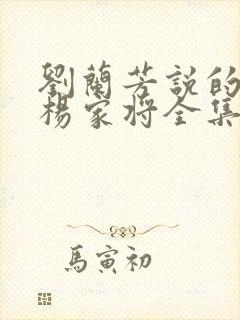 劉蘭芳説的
楊家将全集
馬寅初